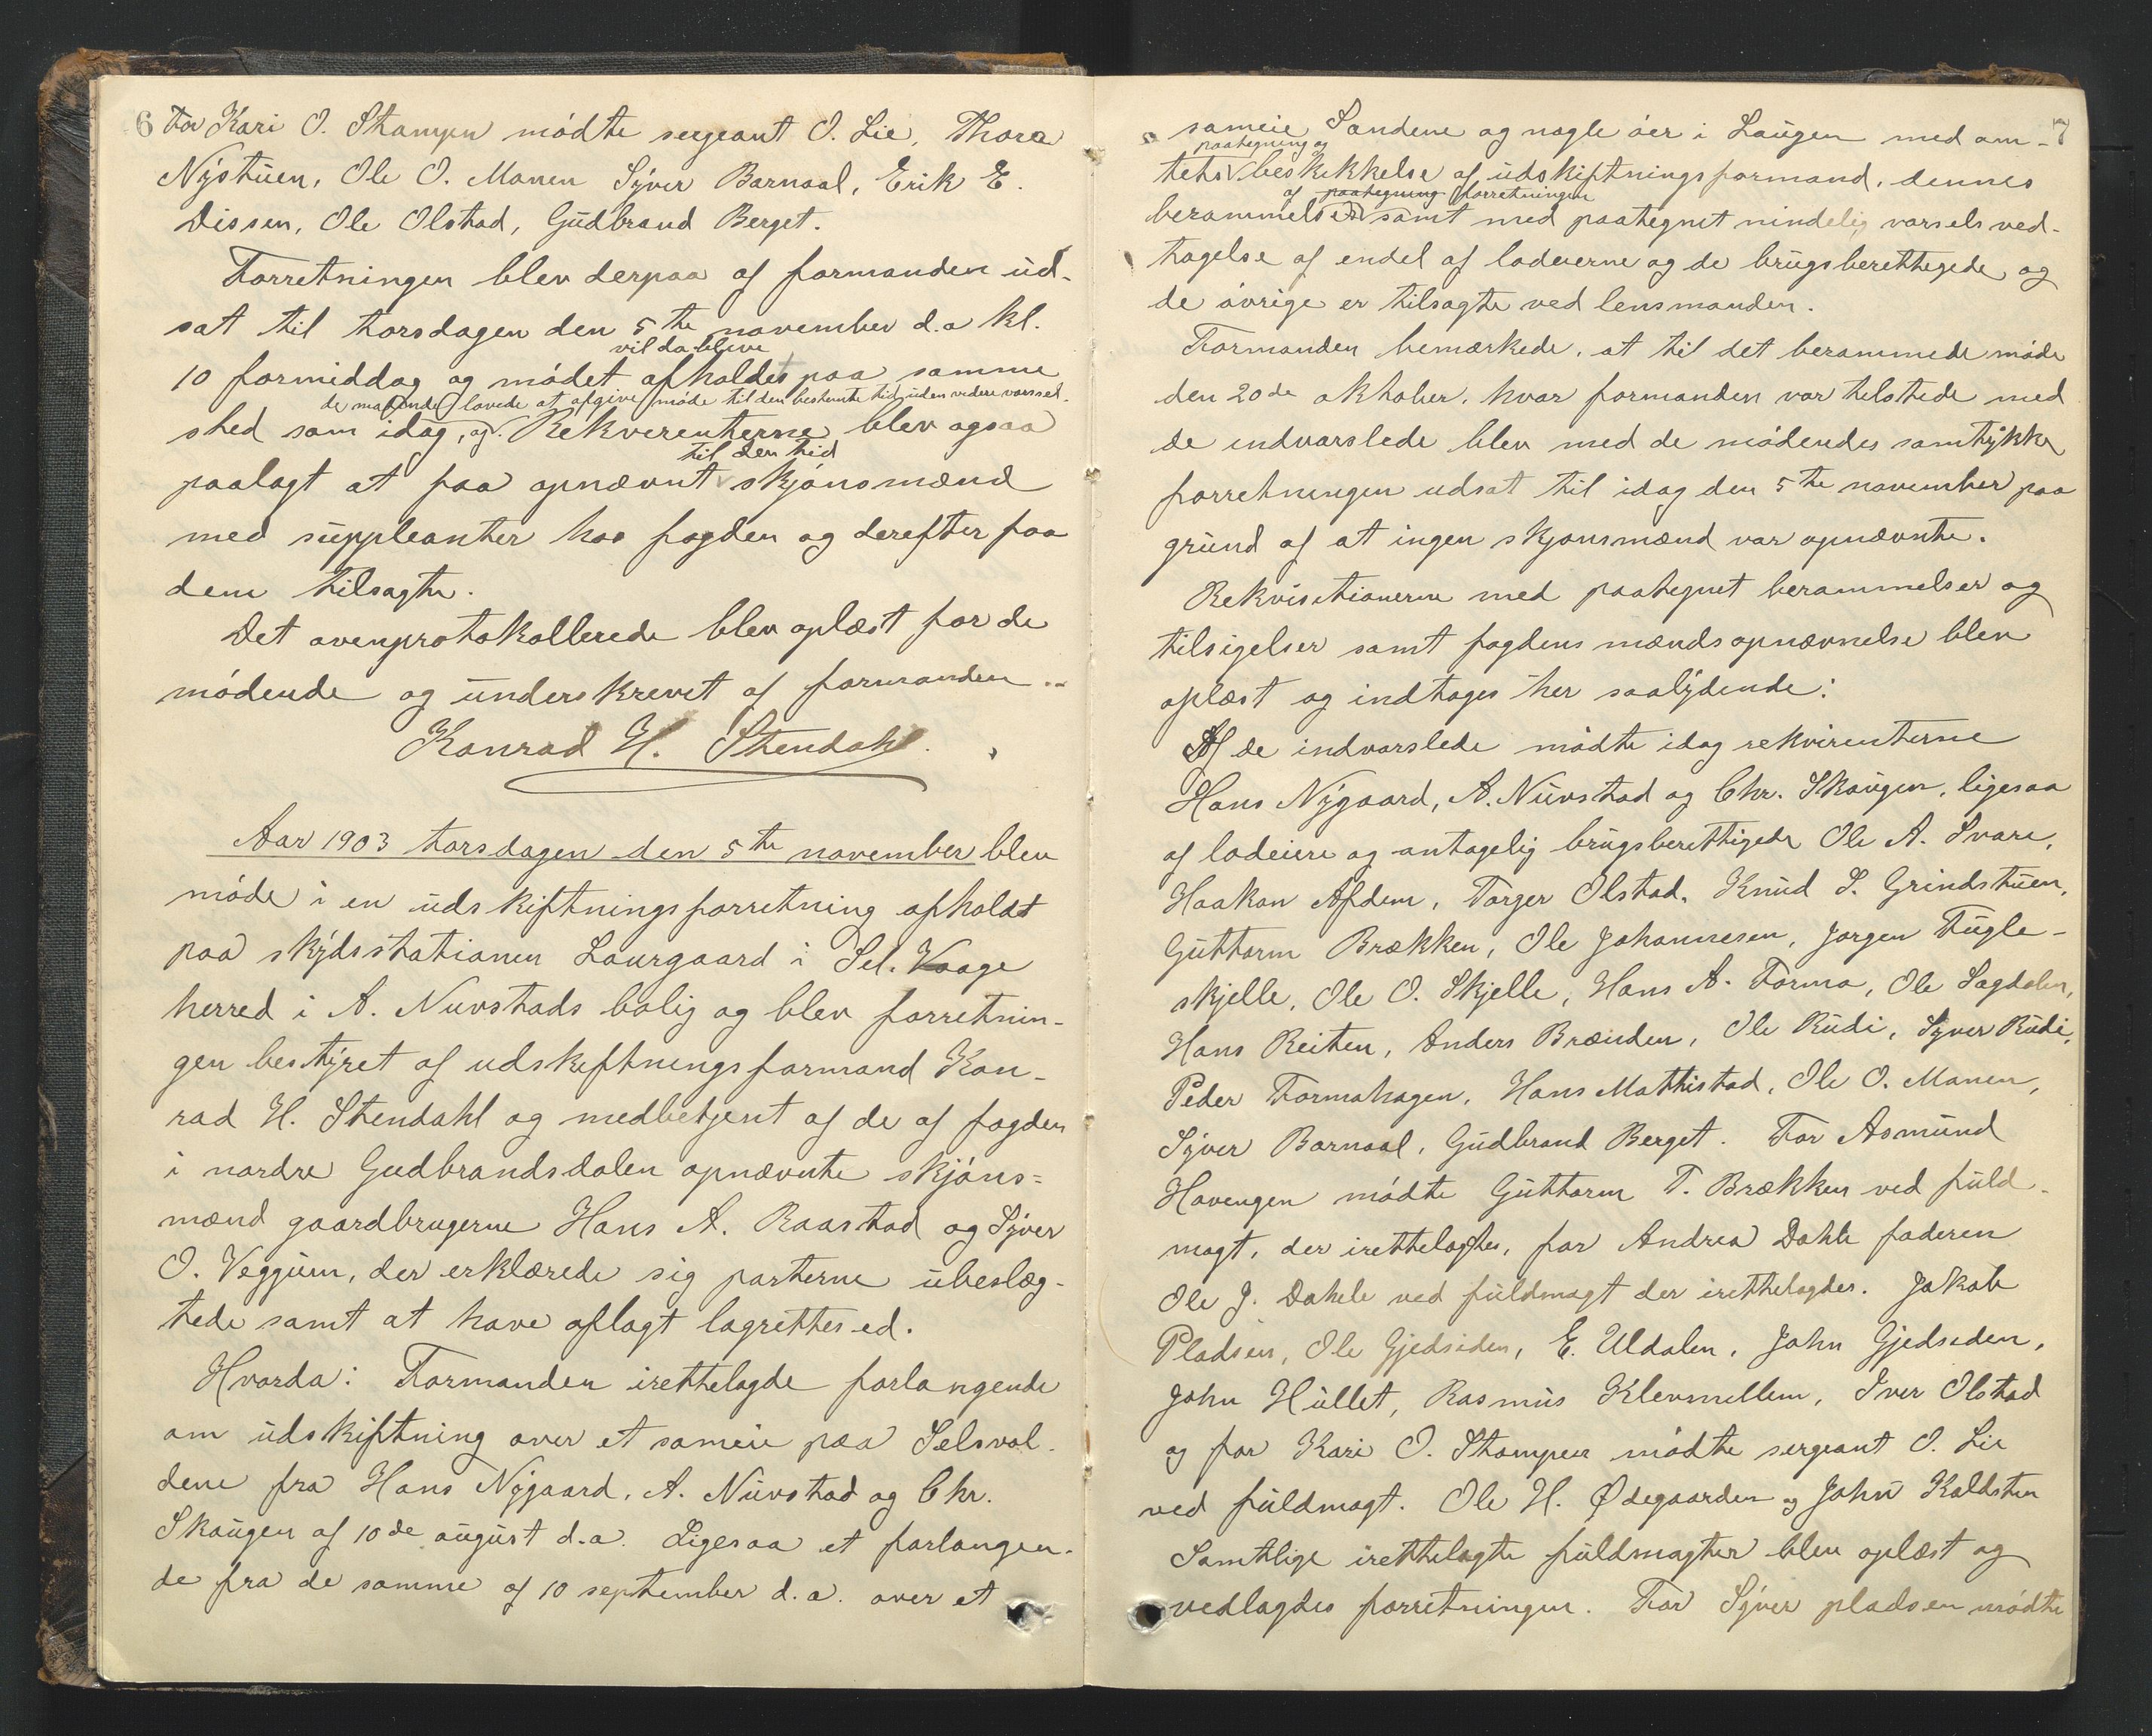 6 For Kari O. Stampen mødte sergeant O. Lie, Thora
Nÿstuen, Ole O. Manen Sÿver Barnaal, Erik E.
Dissen, Ole Olstad, Gudbrand Berget.
Forretningen blev derpaa af formanden ud-
sat til torsdagen den 5te november d.a kl.
vil da blive
10 formiddag og mødet afholdes paa samme
de mødende lovede at afgive møde til den bestemte tid uden videre varssel.
sted som idag, og. Rekvirenterne blev ogsaa
til den tid
paalagt at faa opnævnt skjønsmænd
med suppleanter hos fogden og derefter faa
dem tilsagte.
Det ovenprotokollerede blev oplæst for de
mødende og underskrevet af formanden..
Konrad H. Stendahl.
Aar 1903 torsdagen den 5te november blev
møde i en udskiftningsforretning afholdt
paa skÿdsstationen Laurgaard i Sel. Vaage
herred i A. Nuvstads bolig og blev forretnin-
gen bestÿret af udskiftningsformand Kon-
rad H. Stendahl og medbetjent af de af fogden
i nordre Gudbrandsdalen opnævnte skjøns-
mænd gaardbrugerne Hans A. Raastad og Sÿver
O. Veggum, der erklærede sig parterne ubeslæg-
tede samt at have aflagt lagrettesed.
Hvorda: Formanden irettelagde forlangende
om udskiftning over et sameie paa Selsvol-
dene fra Hans Nÿgaard, A. Nuvstad og Chr.
Skaugen af 10de august d.a. Ligesaa et forlangen-
de fra de samme af 10 september d.a. over et
7
sameie Sandene og nogle øer i Laugen med am-
paategning og
tets beskikkelse af udskiftningsformand, dennes
af paategning forretningen
berammelser samt med paategnet mindelig varsels ved-
tagelse af endel af lodeierne og de brugsberettigede og
de øvrige er tilsagte ved lensmanden.
Formanden bemærkede, at til det berammede møde
den 20de oktober, hvor formanden var tilstede med
de indvarslede blev med de mødendes samtÿkke
forretningen udsat til idag den 5te november paa
grund af at ingen skjønsmænd var opnævnte.
Rekvisitionerne med paategnet berammelser og
tilsigelser samt fogdens mændsopnævnelse blev
oplæst og indtages her saalÿdende:
Af de indvarslede mødte idag rekvirenterne
Hans Nÿgaard, A. Nuvstad og Chr. Skaugen, ligesaa
af lodeiere og antagelig brugsberettigede Ole A. Svare,
Haakon Afdem, Torger Olstad, Knud S. Grindstuen,
Guttorm Brækken, Ole Johannesen, Jørgen Fugle-
skjelle, Ole O. Skjelle, Hans A. Formo, Ole Sagdalen,
Hans Reiten, Anders Brænden, Ole Rudi, Sÿver Rudi,
Peder Formohagen, Hans Mathistad, Ole O. Manen,
Sÿver Barnaal, Gudbrand Berget. For Asmund
Havengen mødte Guttorm T. Brækken ved fuld-
magt, der irettelagdes, for Andrea Dahle faderen
Ole J. Dahle ved fuldmagt der irettelagdes. Jakob
Pladsen, Ole Gjedsiden, E. Uldalen, John Gjedsiden,
John Hullet, Rasmus Klevmellem, Iver Olstad
og for Kari O. Stampen mødte sergeant O. Lie
ved fuldmagt. Ole H. Ødegaarden og John Koldsten
Samtlige irettelagte fuldmagter blev oplæst og
vedlagdes forretningen. For Sÿver pladsen mødte